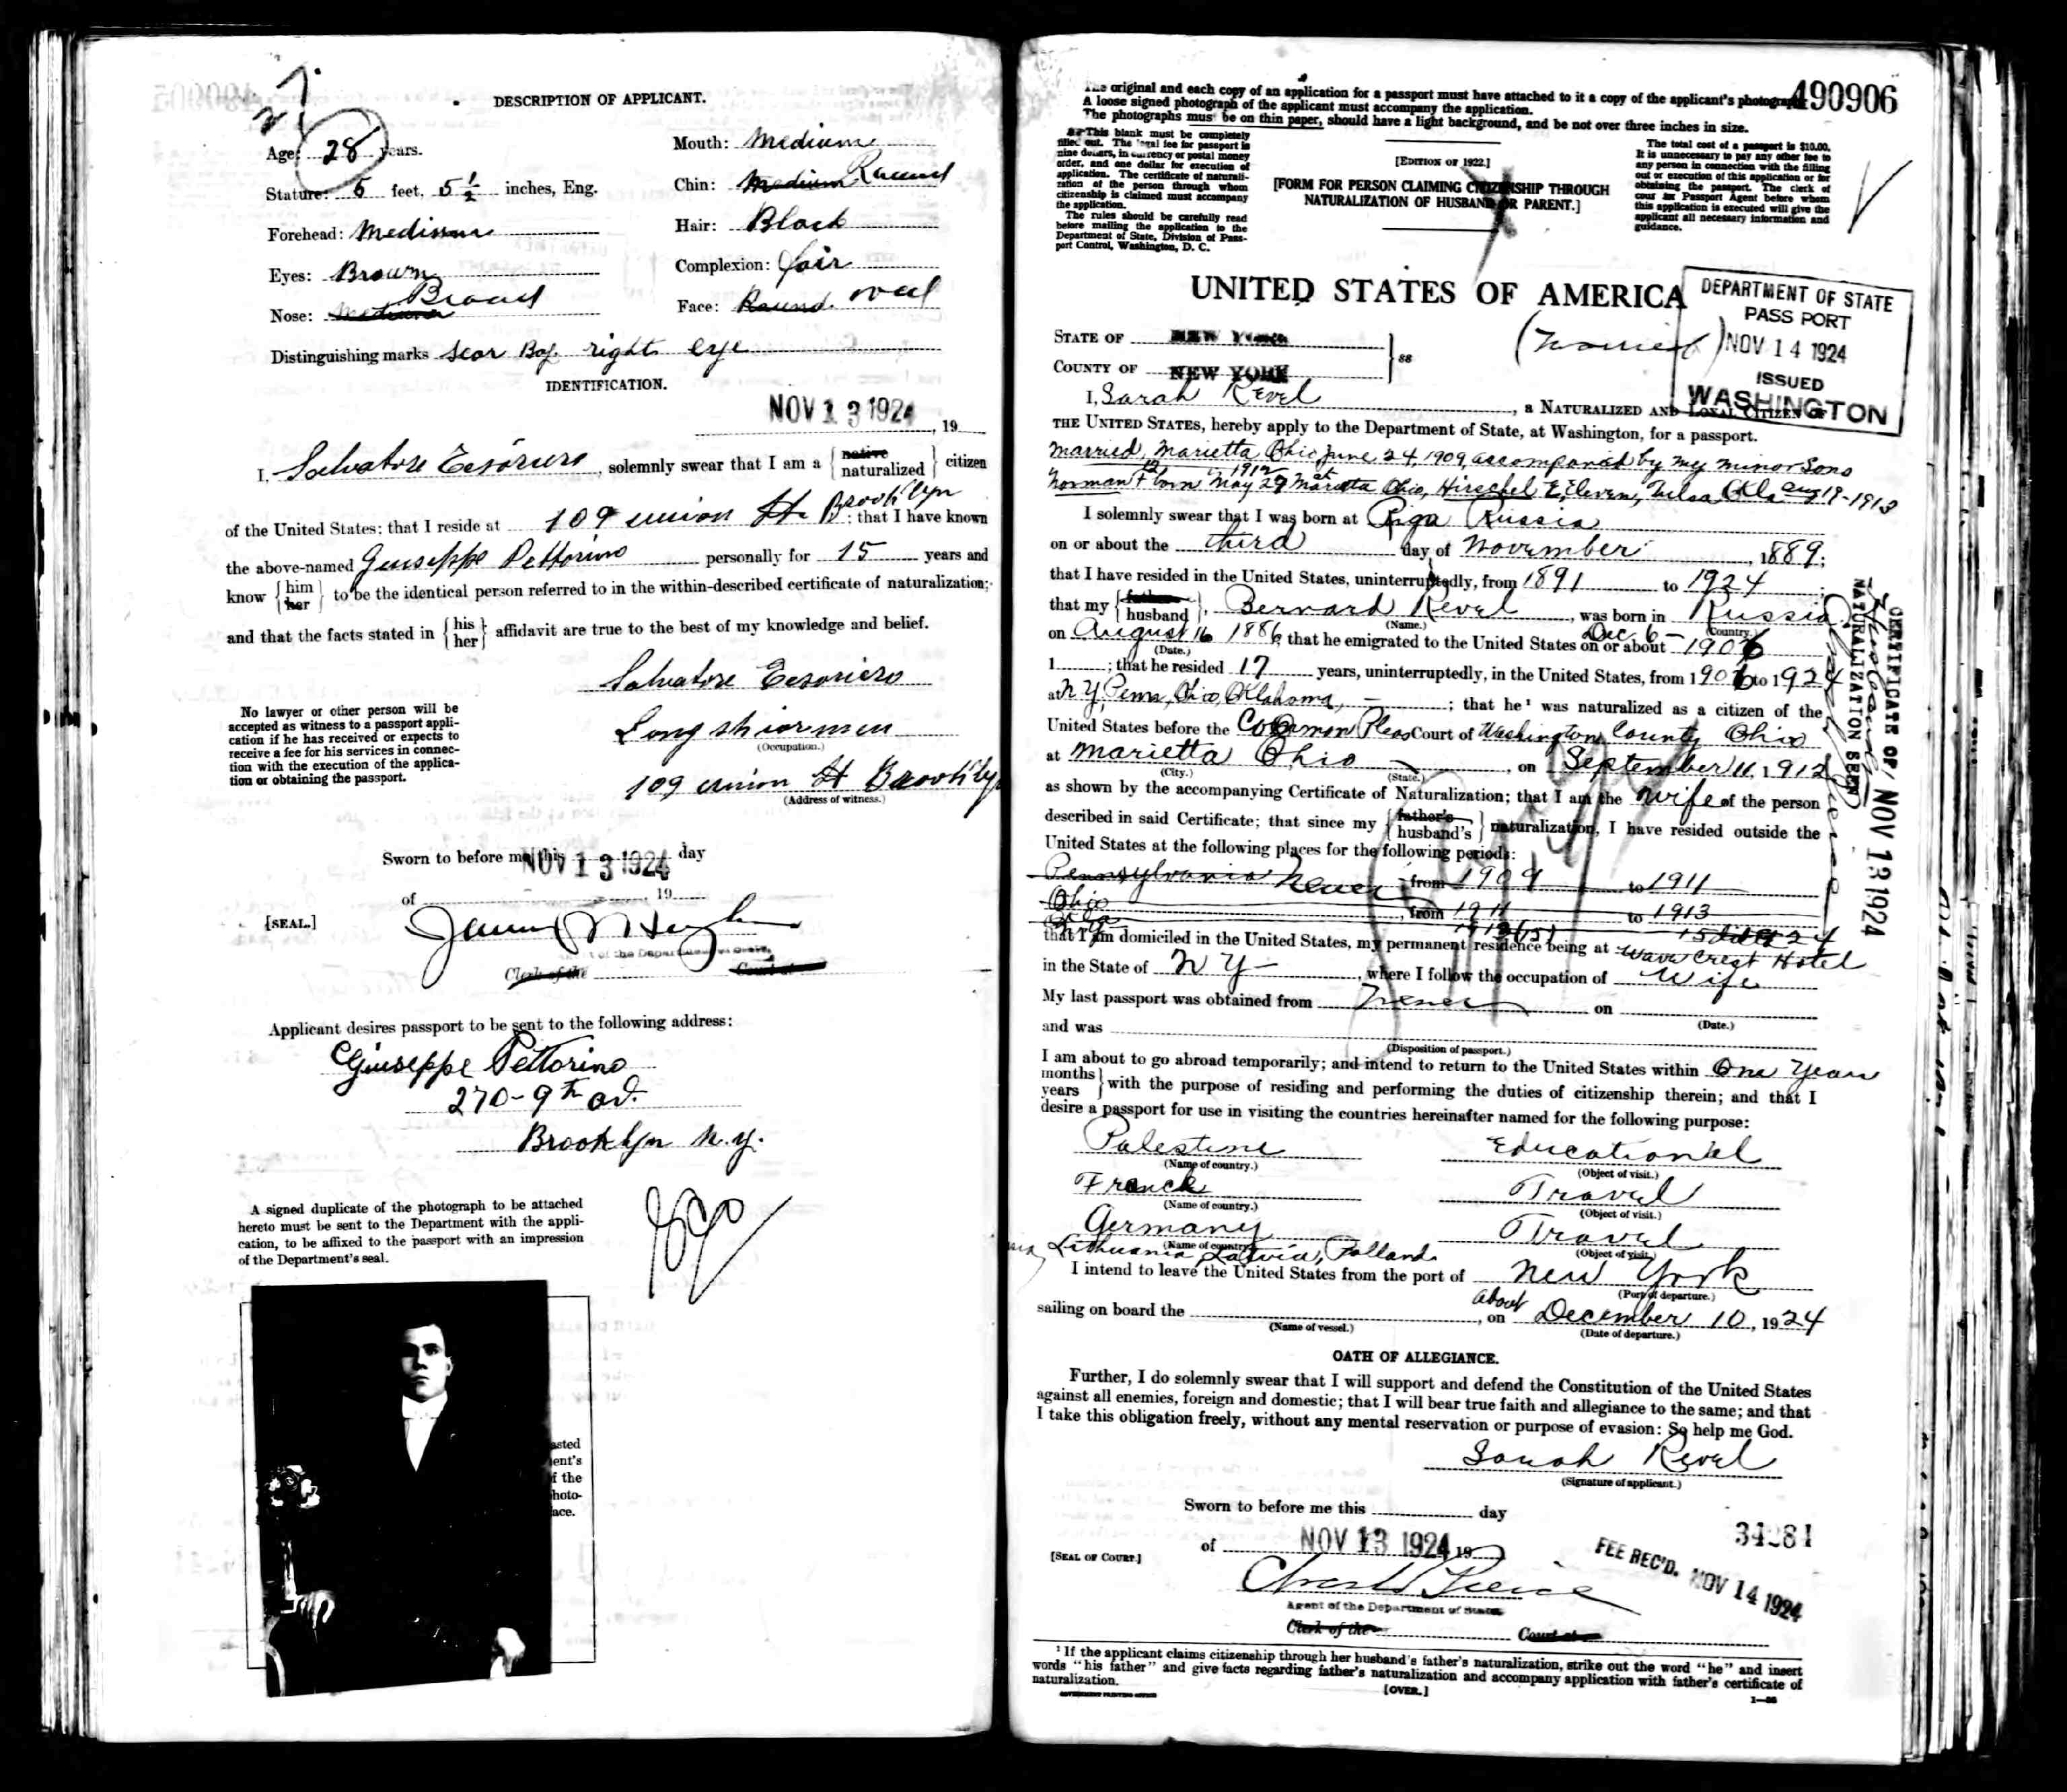 DESCRIPTION OF APPLICANT.
Age: 28 years.
Mouth: Medium
Stature: 5 feet, 5 1/2 inches, Eng.
Chin: Medium Round
Forehead: Medium
Hair: Black
Eyes: Brown
Complexion: fair
Nose: Medium Broad
Face: Round. oval
Distinguishing marks scar right eye
IDENTIFICATION.
NOV 13 1924, 19
I, Salvatore, solemnly swear that I am a {native naturalized} citizen
of the United States; that I reside at 109 union St. Brooklyn; that I have known
the above-named Giuseppe Pettorino personally for 15 years and
know {him her} to be the identical person referred to in the within-described certificate of naturalization;
and that the facts stated in {his her} affidavit are true to the best of my knowledge and belief.
Salvatore
No lawyer or other person will be
accepted as witness to a passport appli-
cation if he has received or expects to
receive a fee for his services in connec-
tion with the execution of the applica-
tion or obtaining the passport.
Longshiormen
(Occupation.)
109 union St Brooklyn
(Address of witness.)
Sworn to before me this NOV 13 1924 day
of , 19
[SEAL.]
Clerk of the Court at
Applicant desires passport to be sent to the following address:
Giuseppe Pettorino
270-9th
Brooklyn N.Y.
A signed duplicate of the photograph to be attached
hereto must be sent to the Department with the appli-
cation, to be affixed to the passport with an impression
of the Department's seal.
asted
ent's
f the
hoto-
ace.
The original and each copy of an application for a passport must have attached to it a copy of the applicant's photograph
490906
A loose signed photograph of the applicant must accompany the application.
The photographs must be on thin paper, should have a light background, and be not over three inches in size.
This blank must be completely
filled out. The legal fee for passport is
nine dollars, in currency or postal money
order, and one dollar for execution of
application. The certificate of naturali-
zation of the person through whom
citizenship is claimed must accompany
the application.
The rules should be carefully read
before mailing the application to the
Department of State, Division of Pass-
port Control, Washington, D. C.
[EDITION OF 1922.]
[FORM FOR PERSON CLAIMING CITIZENSHIP THROUGH
NATURALIZATION OF HUSBAND OR PARENT.]
The total cost of a passport is $10.00.
It is unnecessary to pay any other fee to
any person in connection with the filling
out or execution of this application or for
obtaining the passport. The clerk of
court or Passport Agent before whom
this application is executed will give the
applicant all necessary information and
guidance.
UNITED STATES OF AMERICA
DEPARTMENT OF STATE
PASSPORT
NOV 14 1924
ISSUED
WASHINGTON
STATE OF NEW YORK
COUNTY OF NEW YORK
ss
I, Sarah Revel, a NATURALIZED AND LOYAL CITIZEN OF
THE UNITED STATES, hereby apply to the Department of State, at Washington, for a passport.
Married, Marietta Ohio June 24, 1909, accompanied by my minor sons
Norman 12 born May 29 1912 Marietta Ohio, Hirschel E. Eleven, Tulsa, Okla Aug 19-1913
I solemnly swear that I was born at Riga Russia
on or about the third day of November, 1889;
that I have resided in the United States, uninterruptedly, from 1891 to 1924
that my {father husband}, Bernard Revel, was born in Russia
(Name.) (Country.)
on August 16 1886, that he emigrated to the United States on or about Dec. 6 - 1906
(Date.)
1 ; that he resided 17 years, uninterruptedly, in the United States, from 1906 to 1924
at N Y, Penn, Ohio, Oklahoma, ; that he¹ was naturalized as a citizen of the
United States before the Common Pleas Court of Washington County Ohio
at Marietta Ohio , on September 11, 1912
(City.) (State.)
as shown by the accompanying Certificate of Naturalization; that I am the wife of the person
described in said Certificate; that since my {father's husband's} naturalization, I have resided outside the
United States at the following places for the following periods:
Pennsylvania Never from 1909 to 1911
Ohio , from 1911 to 1913
that I am domiciled in the United States, my permanent residence being at Wave Crest Hotel
in the State of N Y , where I follow the occupation of Wife
My last passport was obtained from Never on
(Date.)
and was
(Disposition of passport.)
I am about to go abroad temporarily; and intend to return to the United States within One Year
{months years} with the purpose of residing and performing the duties of citizenship therein; and that I
desire a passport for use in visiting the countries hereinafter named for the following purpose:
Palestine Educational
(Name of country.) (Object of visit.)
France Travel
(Name of country.) (Object of visit.)
Germany Travel
(Name of country.) (Object of visit.)
Lithuania, Latvia, Polland
I intend to leave the United States from the port of New York
(Port of departure.)
sailing on board the , on about December 10, 1924
(Name of vessel.) (Date of departure.)
OATH OF ALLEGIANCE.
Further, I do solemnly swear that I will support and defend the Constitution of the United States
against all enemies, foreign and domestic; that I will bear true faith and allegiance to the same; and that
I take this obligation freely, without any mental reservation or purpose of evasion: So help me God.
Sarah Revel
(Signature of applicant.)
Sworn to before me this day
of NOV 13 1924 19
[SEAL OF COURT.]
FEE REC'D. NOV 14 1924
Agent of the Department of State
Clerk of the Court at
¹ If the applicant claims citizenship through her husband's father's naturalization, strike out the word "he" and insert
words "his father" and give facts regarding father's naturalization and accompany application with father's certificate of
naturalization.
GOVERNMENT PRINTING OFFICE
[OVER.]
CERTIFICATE OF
NATURALIZATION SEEN
NOV 13 1924